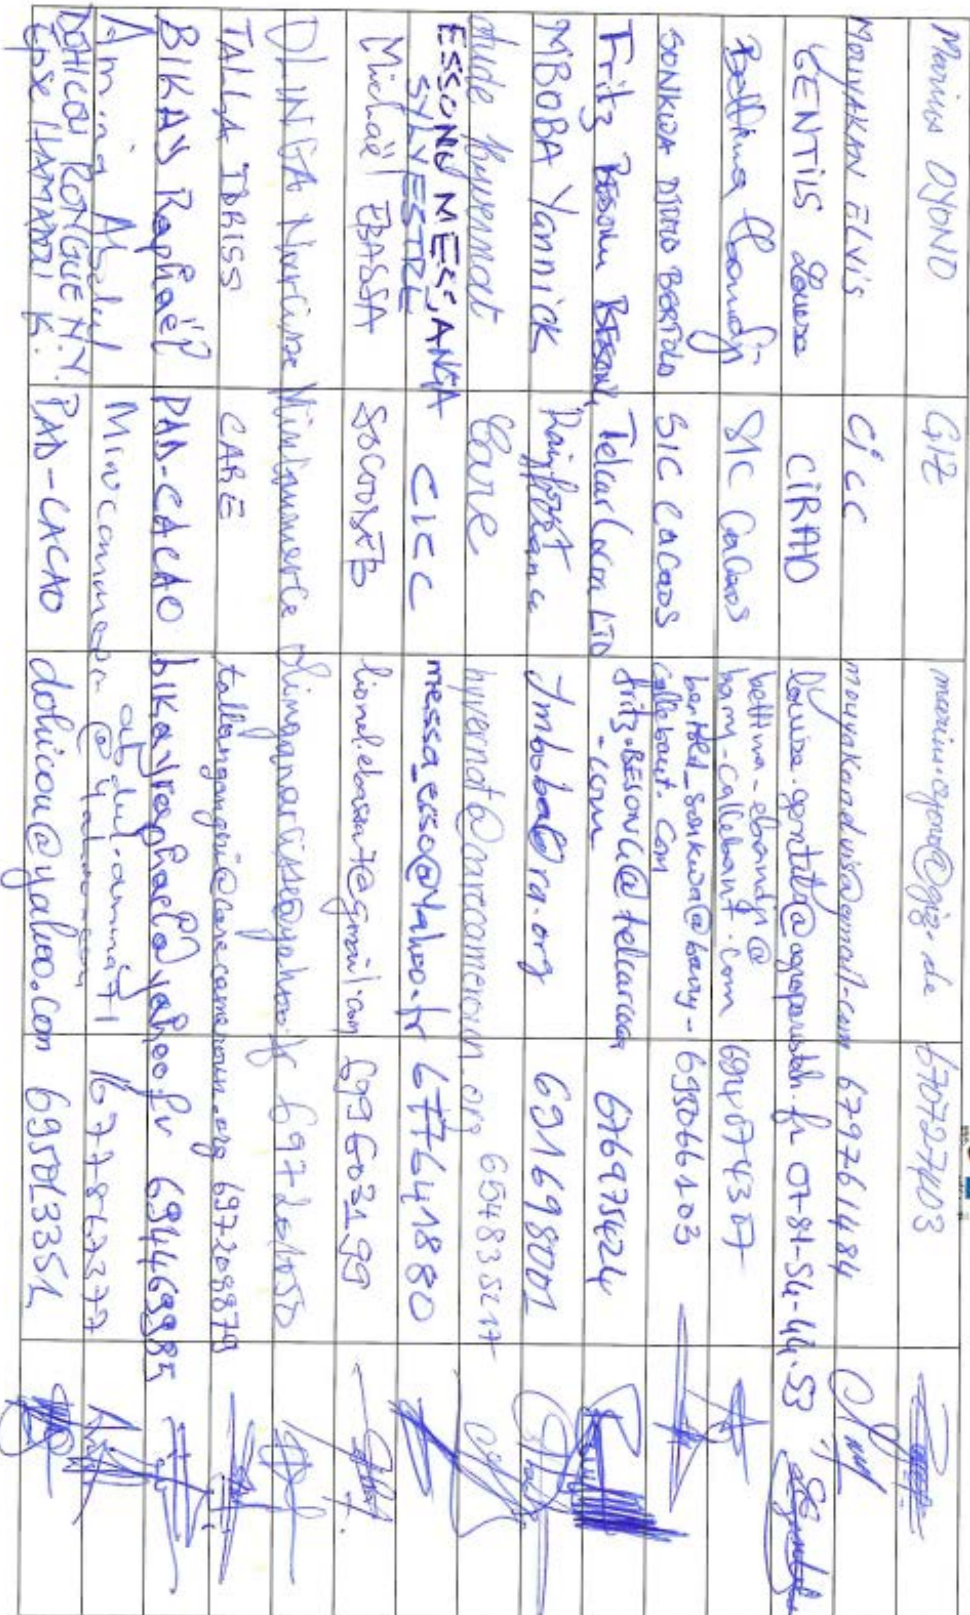 Marius OYONO GIZ marius.oyono@giz.de 670727403
MOUYAKAN ELVIS CICC mouyakanelvis@gmail.com 679761484
GENTILS Louise CIRAD louise.gentils@agroparistech.fr 07-81-54-44-53
Bettina Ebandji SIC Cacaos bettina-ebandji@
barry-callebaut.com 694074307
SONKWA DJIMO BERTOLD SIC CACAOS berthold_sonkwa@barry-
callebaut.com 695066103
Fritz BESONG BESONG Telcar Cocoa LTD fritz.BESONG@telcarcocoa
.com 676975424
MBOBA Yannick Rainforest Alliance Ymboba@ra.org 691698001
Aude hyvernat Care hyvernat@carecameroun.org
ESSONO MESSANGA
SYLVESTRE CICC messa_esso@yahoo.fr 677641880
Michaël EBASSA SOCOODEB 699603199
OLINGA Narcisse Mincommerce olinganarcisse@yahoo.fr
TALLA IDRISS CARE 697208879
BIKAY Raphaël PAD-CACAO bikayraphael@yahoo.fr 694469985
Amina Abdul Mincommerce
DOHICOU RONGUE N.Y.
Epse HAMADI K. PAD-CACAO dohicou@yahoo.com 695013351